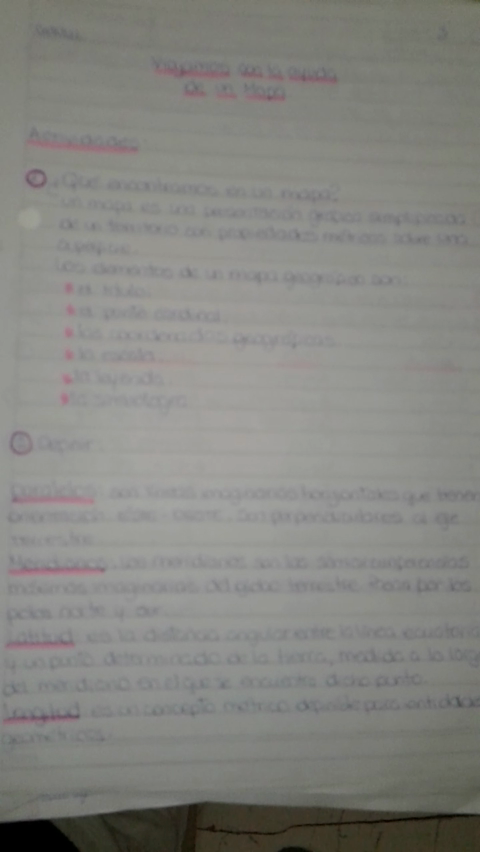 Viajamos con la ayuda
de un Mapa
Actividades
① ¿Qué encontramos en un mapa?
un mapa es una gráfica simplificada
de un territorio con propiedades métricas sobre una
Los elementos de un mapa geográfico son:
el título
el punto cardinal
las coordenadas geográficas
la escala
la leyenda
la simbología
② Definir.
Paralelos: son líneas imaginarias horizontales que tienen
orientación este oeste, son perpendiculares al eje
terrestre.
Meridianos: los meridianos son las semicircunferencias
máximas imaginarias del globo terrestre pasan por los
polos norte y sur.
Latitud: es la distancia angular entre la línea ecuatorial
y un punto determinado de la tierra, medida a lo largo
del meridiano en el que se encuentra dicho punto.
Longitud: es un concepto métrico definible para entidades
geométricas.